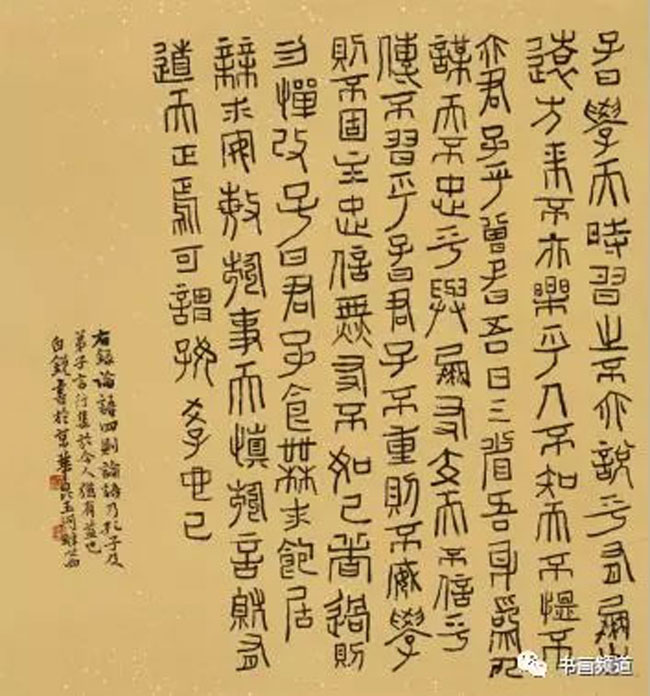 子曰學而時習之不亦說乎有朋自
遠方來不亦樂乎人不知而不慍不
亦君子乎曾子曰吾日三省吾身為人
謀而不忠乎與朋友交而不信乎
傳不習乎子曰君子不重則不威學
則不固主忠信無友不如己者過則
勿憚改子曰君子食無求飽居
無求安敏於事而慎於言就有
道而正焉可謂好學也已
右錄論語四則論語乃孔子及
弟子言行集於今人猶有益也
白銳書於京華
书画频道